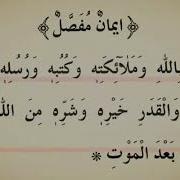 ﴿ اِيمَانْ مُفَصَّلْ ﴾
بِاللهِ وَمَلَآئِكَتِهٖ وَكُتُبِهٖ وَرُسُلِهٖ
وَالْقَدَرِ خَيْرِهٖ وَشَرِّهٖ مِنَ
بَعْدَ الْمَوْتِ *